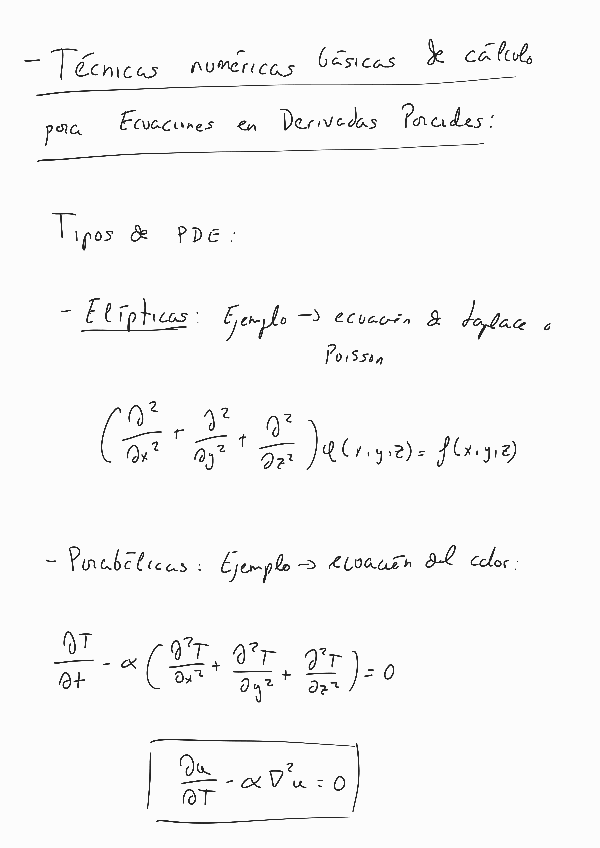 - Técnicas numéricas básicas de cálculo
para Ecuaciones en Derivadas Parciales:
Tipos de PDE:
- Elípticas: Ejemplo → ecuación de Laplace o
Poisson
(∂²/∂x² + ∂²/∂y² + ∂²/∂z²) φ(x,y,z) = f(x,y,z)
- Parabólicas: Ejemplo → ecuación del calor:
∂T/∂t - α (∂²T/∂x² + ∂²T/∂y² + ∂²T/∂z²) = 0
∂u/∂T - α ∇²u = 0